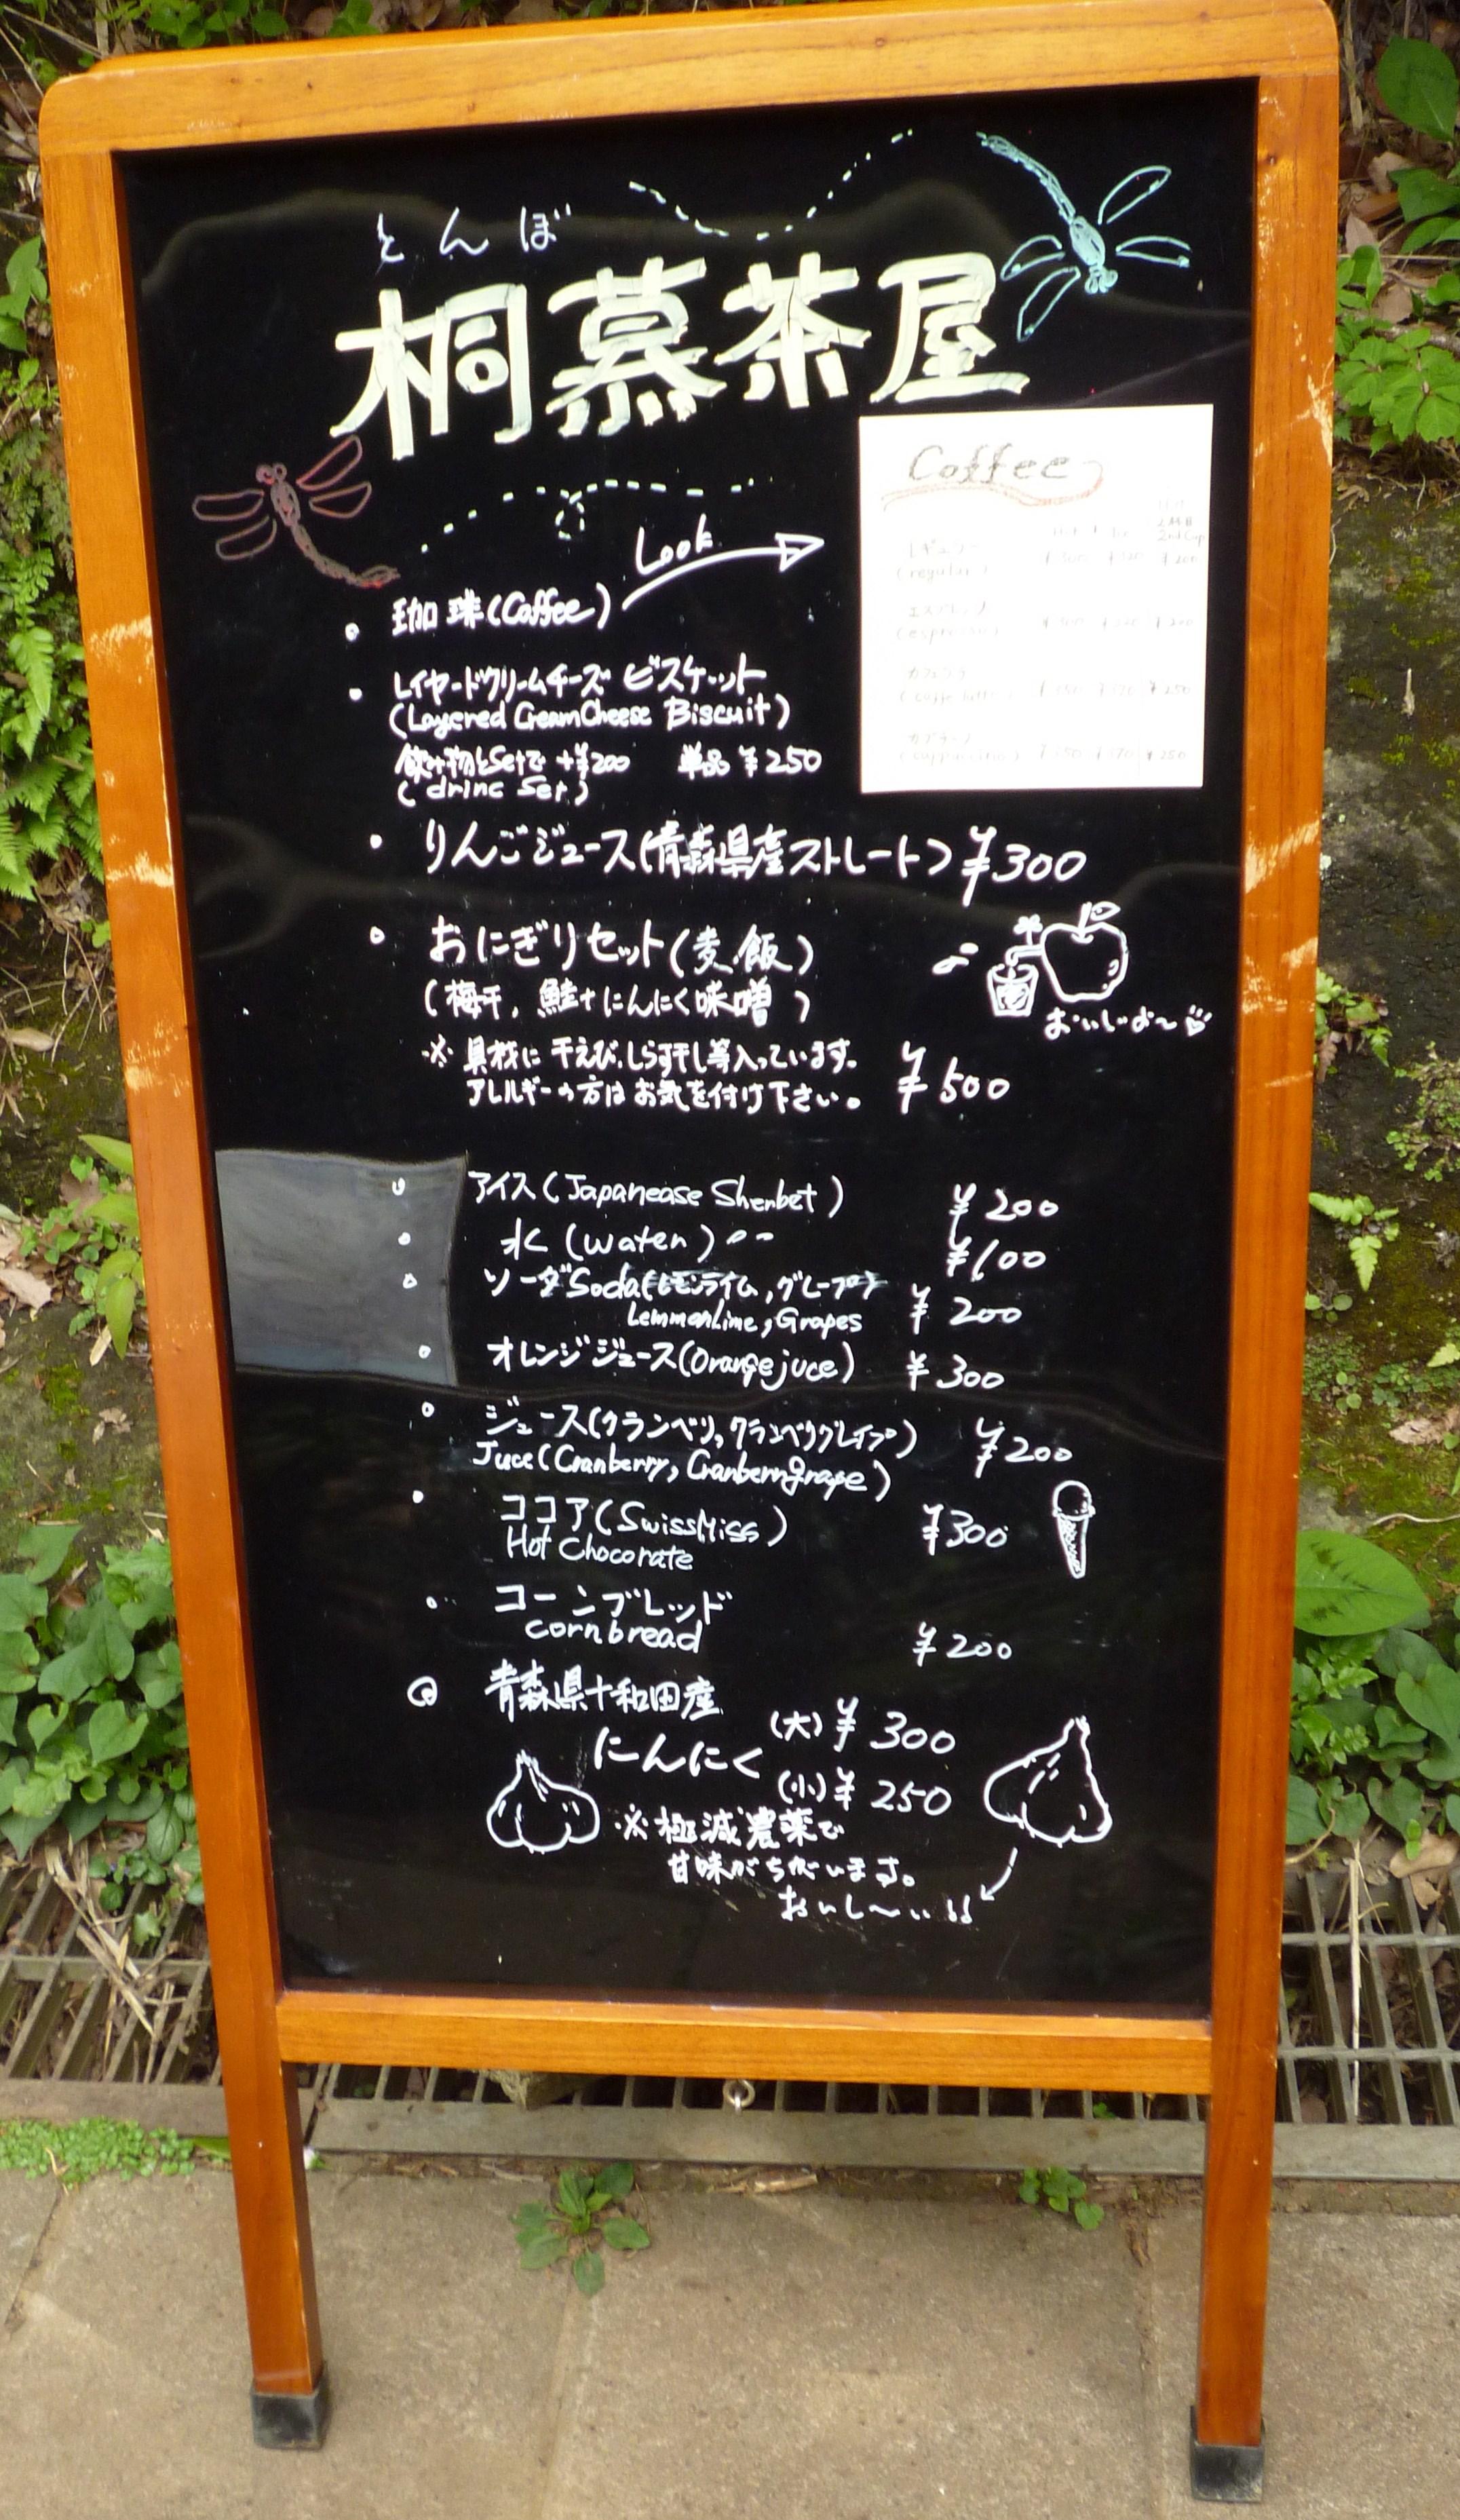 とんぼ
桐慕茶屋
Coffee
2杯目
2nd Cup
レギュラー
(regular)
¥200
エスプレッソ
(espresso)
¥200
カフェラテ
¥250
カプチーノ
(cappuccino)
¥250
Look
珈琲(Coffee)
レイヤードクリームチーズ ビスケット
(Layered CreamCheese Biscuit)
飲み物とSetで +¥200 単品 ¥250
(drinc Set)
りんごジュース(青森県産ストレート) ¥300
おにぎりセット(麦飯)
(梅干, 鮭+にんにく味噌)
おいしいよ〜
※具材に干えび、しらす干し等入っています。
アレルギーの方はお気を付け下さい。 ¥500
アイス(Japanease Sherbet) ¥200
水(water) ¥100
ソーダSoda(レモンライム,グレープ)
LemmonLime, Grapes ¥200
オレンジジュース(Orangejuce) ¥300
ジュース(クランベリ,クランベリグレイプ) ¥200
Juce(Cranberry, Cranberrygrape)
ココア(SwissMiss) ¥300
Hot Chocorate
コーンブレッド
cornbread ¥200
青森県十和田産
にんにく (大) ¥300
(小) ¥250
※極減農薬で
甘味がちがいます。
おいし〜い!!